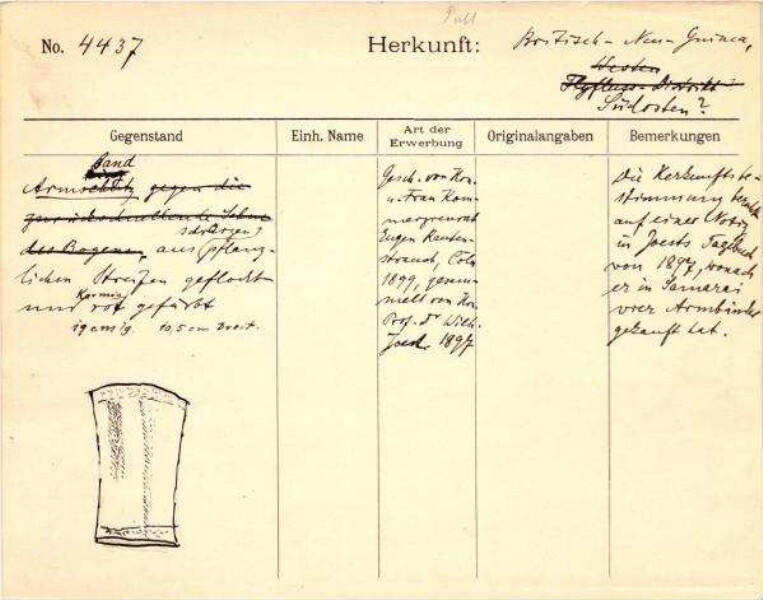 No. 4437
Herkunft:
Britisch-Neu-Guinea,
Westen
Flyfluss-Distrikt?
Südosten?
Gegenstand
Einh. Name
Art der Erwerbung
Originalangaben
Bemerkungen
Band
Armschutz gegen die
zurückschnellende Sehne
des Bogens, aus pflanz-
lichen Streifen geflochten
Karmin
und rot gefärbt
10,5 cm breit.
Gesch. von Hrn.
u. Frau Kom-
merzienrat
Eugen Rauten-
strauch, Cöln
1899, gesam-
melt von Hrn.
Prof. Dr Wilh.
Joest. 1897
Die Herkunftsbe-
stimmung beruht
auf einer Notiz
in Joests Tagebuch
von 1897, wonach
er in Samarai
vier Armbänder
gekauft hat.